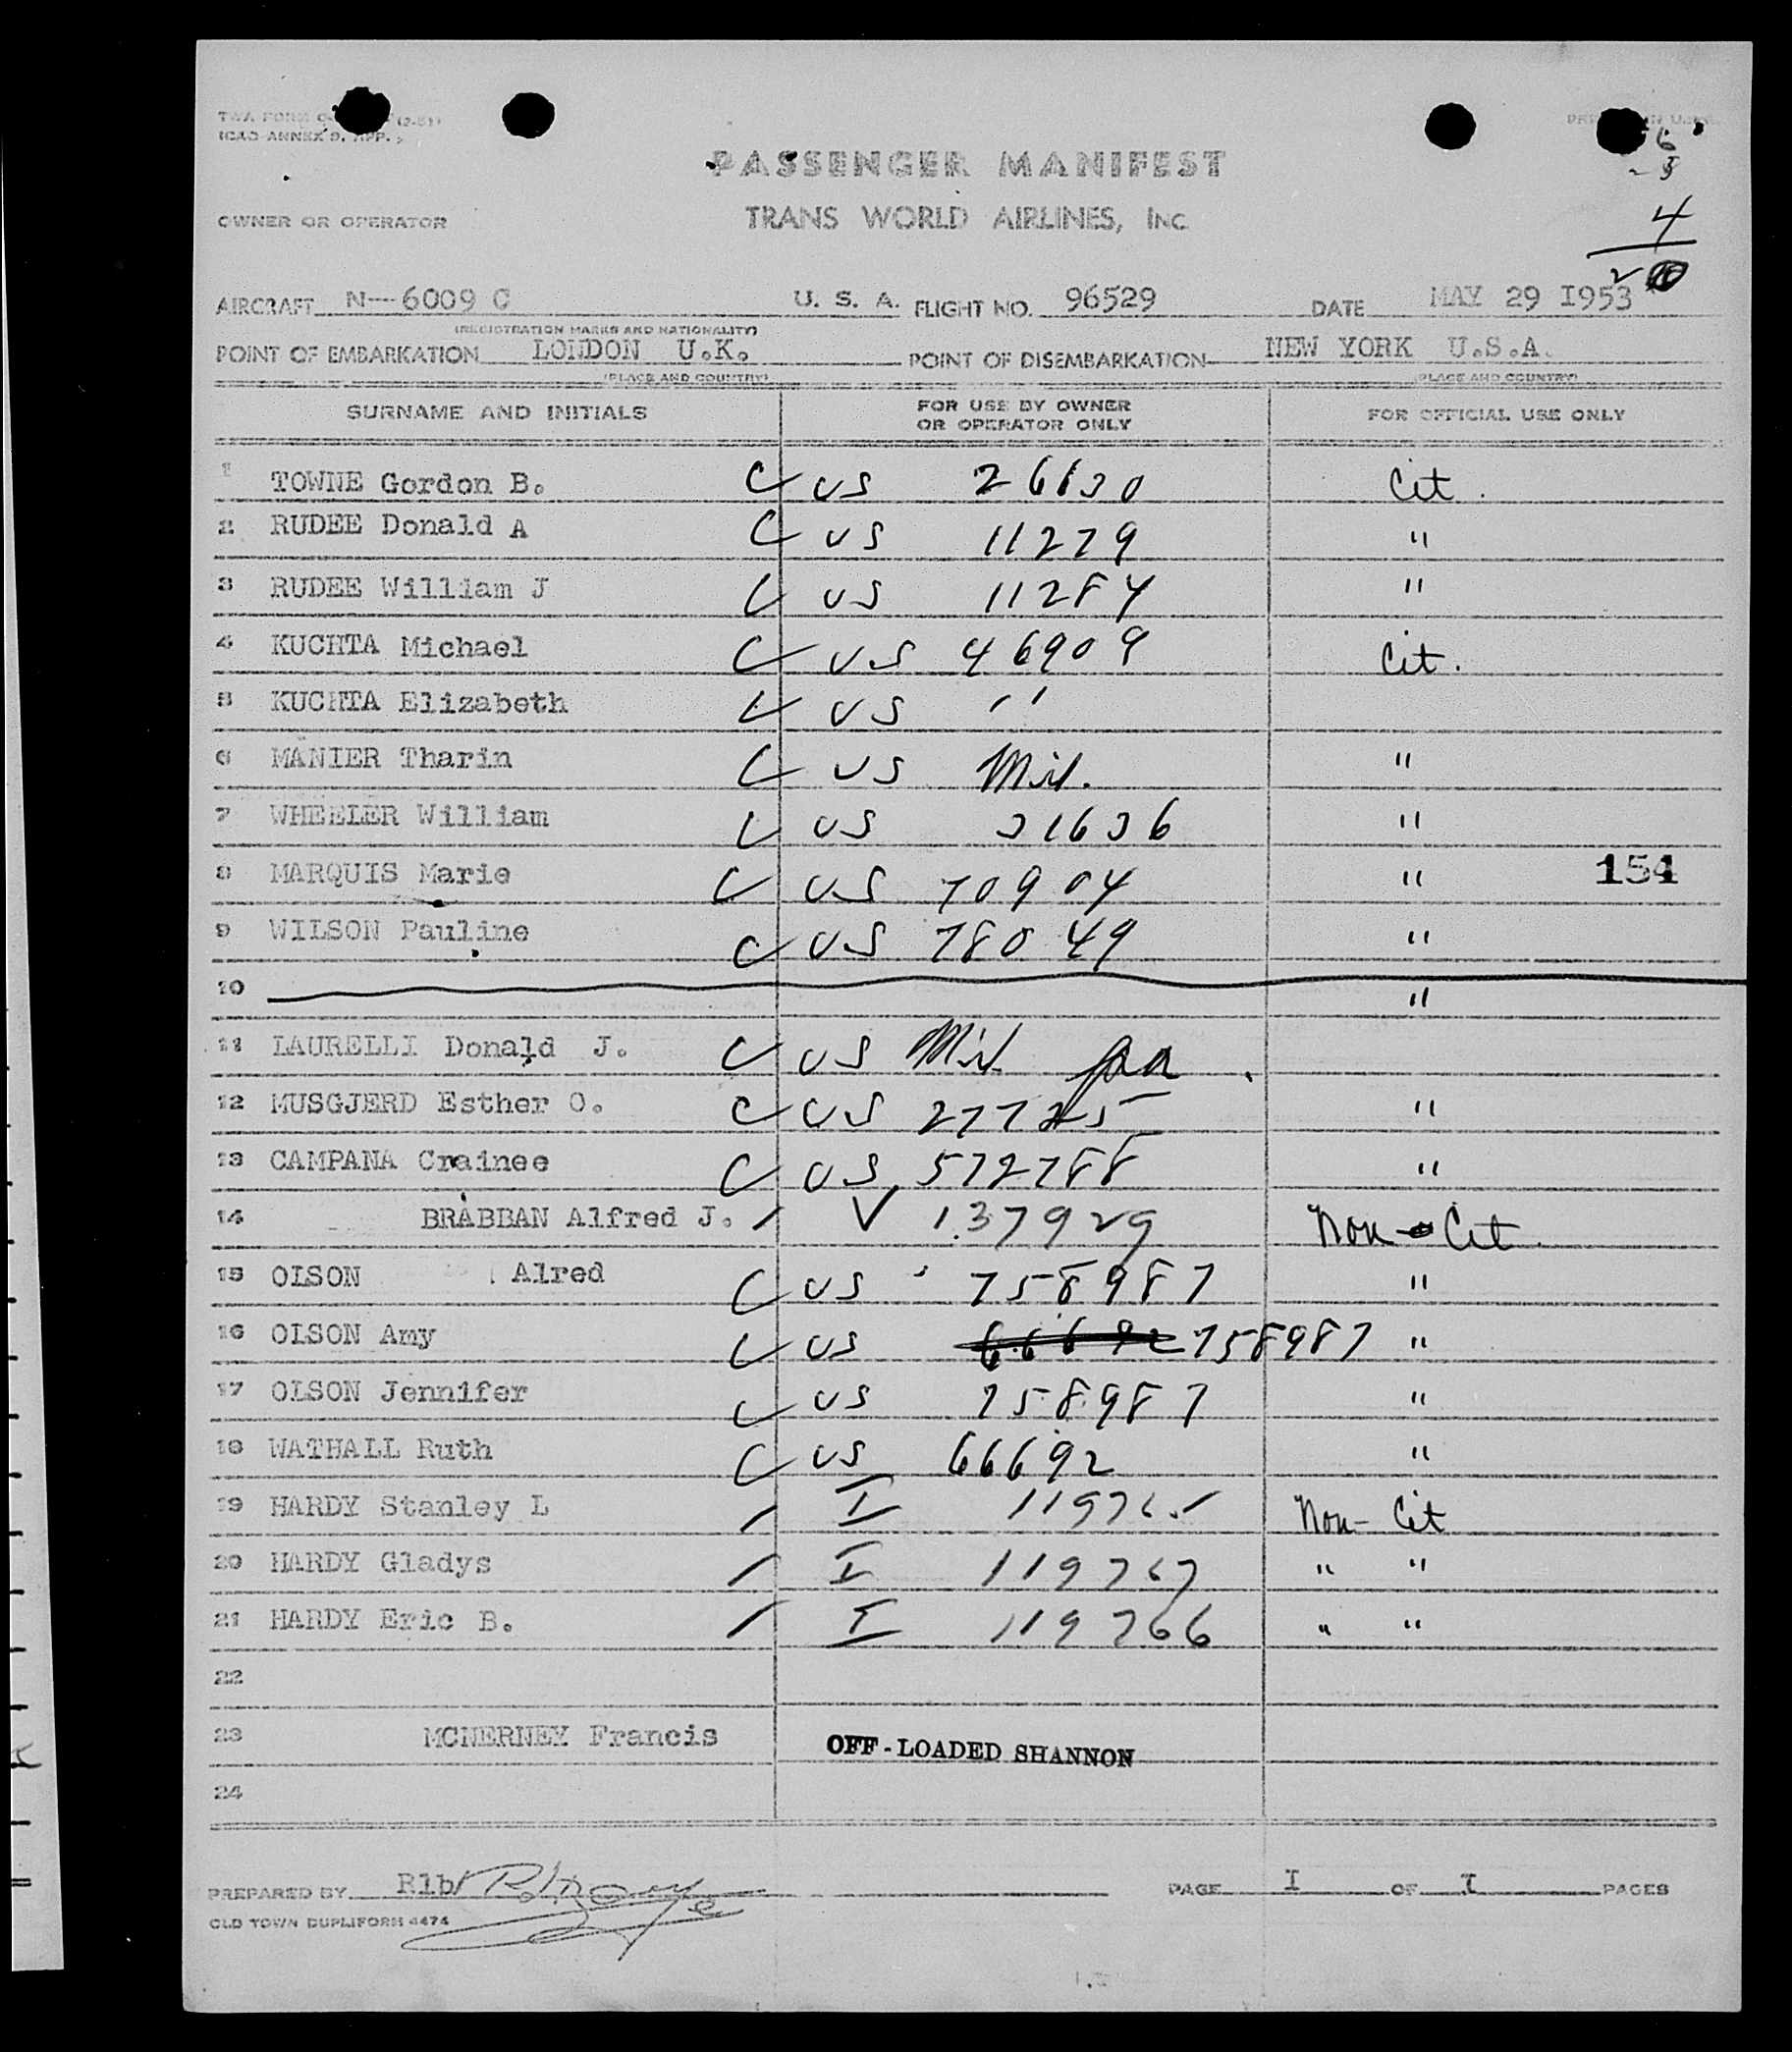 TWA FORM
ICAO ANNEX 9, APP.
6
- 3
PASSENGER MANIFEST
4
OWNER OR OPERATOR TRANS WORLD AIRLINES, INC
AIRCRAFT N—6009 C U. S. A. FLIGHT NO. 96529 DATE MAY 29 I953
(REGISTRATION MARKS AND NATIONALITY)
POINT OF EMBARKATION LONDON U.K. POINT OF DISEMBARKATION NEW YORK U.S.A.
(PLACE AND COUNTRY) (PLACE AND COUNTRY)
SURNAME AND INITIALS FOR USE BY OWNER OR OPERATOR ONLY FOR OFFICIAL USE ONLY
1 TOWNE Gordon B. C US 26630 Cit.
2 RUDEE Donald A C US 11279 "
3 RUDEE William J C US 11284 "
4 KUCHTA Michael C US 46909 Cit.
5 KUCHTA Elizabeth C US "
6 MANIER Tharin C US Mil. "
7 WHEELER William C US 31636 "
8 MARQUIS Marie C US 70904 " 154
9 WILSON Pauline C US 78049 "
10 "
11 LAURELLI Donald J. C US Mil
12 MUSGJERD Esther O. C US 27725 "
13 CAMPANA Crainee C US 572788 "
14 BRABBAN Alfred J. / V 137929 Non-Cit
15 OLSON Alred C US 758987 "
16 OLSON Amy C US 66692 758987 "
17 OLSON Jennifer C US 758987 "
18 WATHALL Ruth C US 66692 "
19 HARDY Stanley L / I Non-Cit
20 HARDY Gladys / I 119767 " "
21 HARDY Eric B. / I 119766 " "
22
23 MCNERNEY Francis OFF-LOADED SHANNON
24
PREPARED BY Rlb PAGE I OF I PAGES
OLD TOWN DUPLIFORM 4474